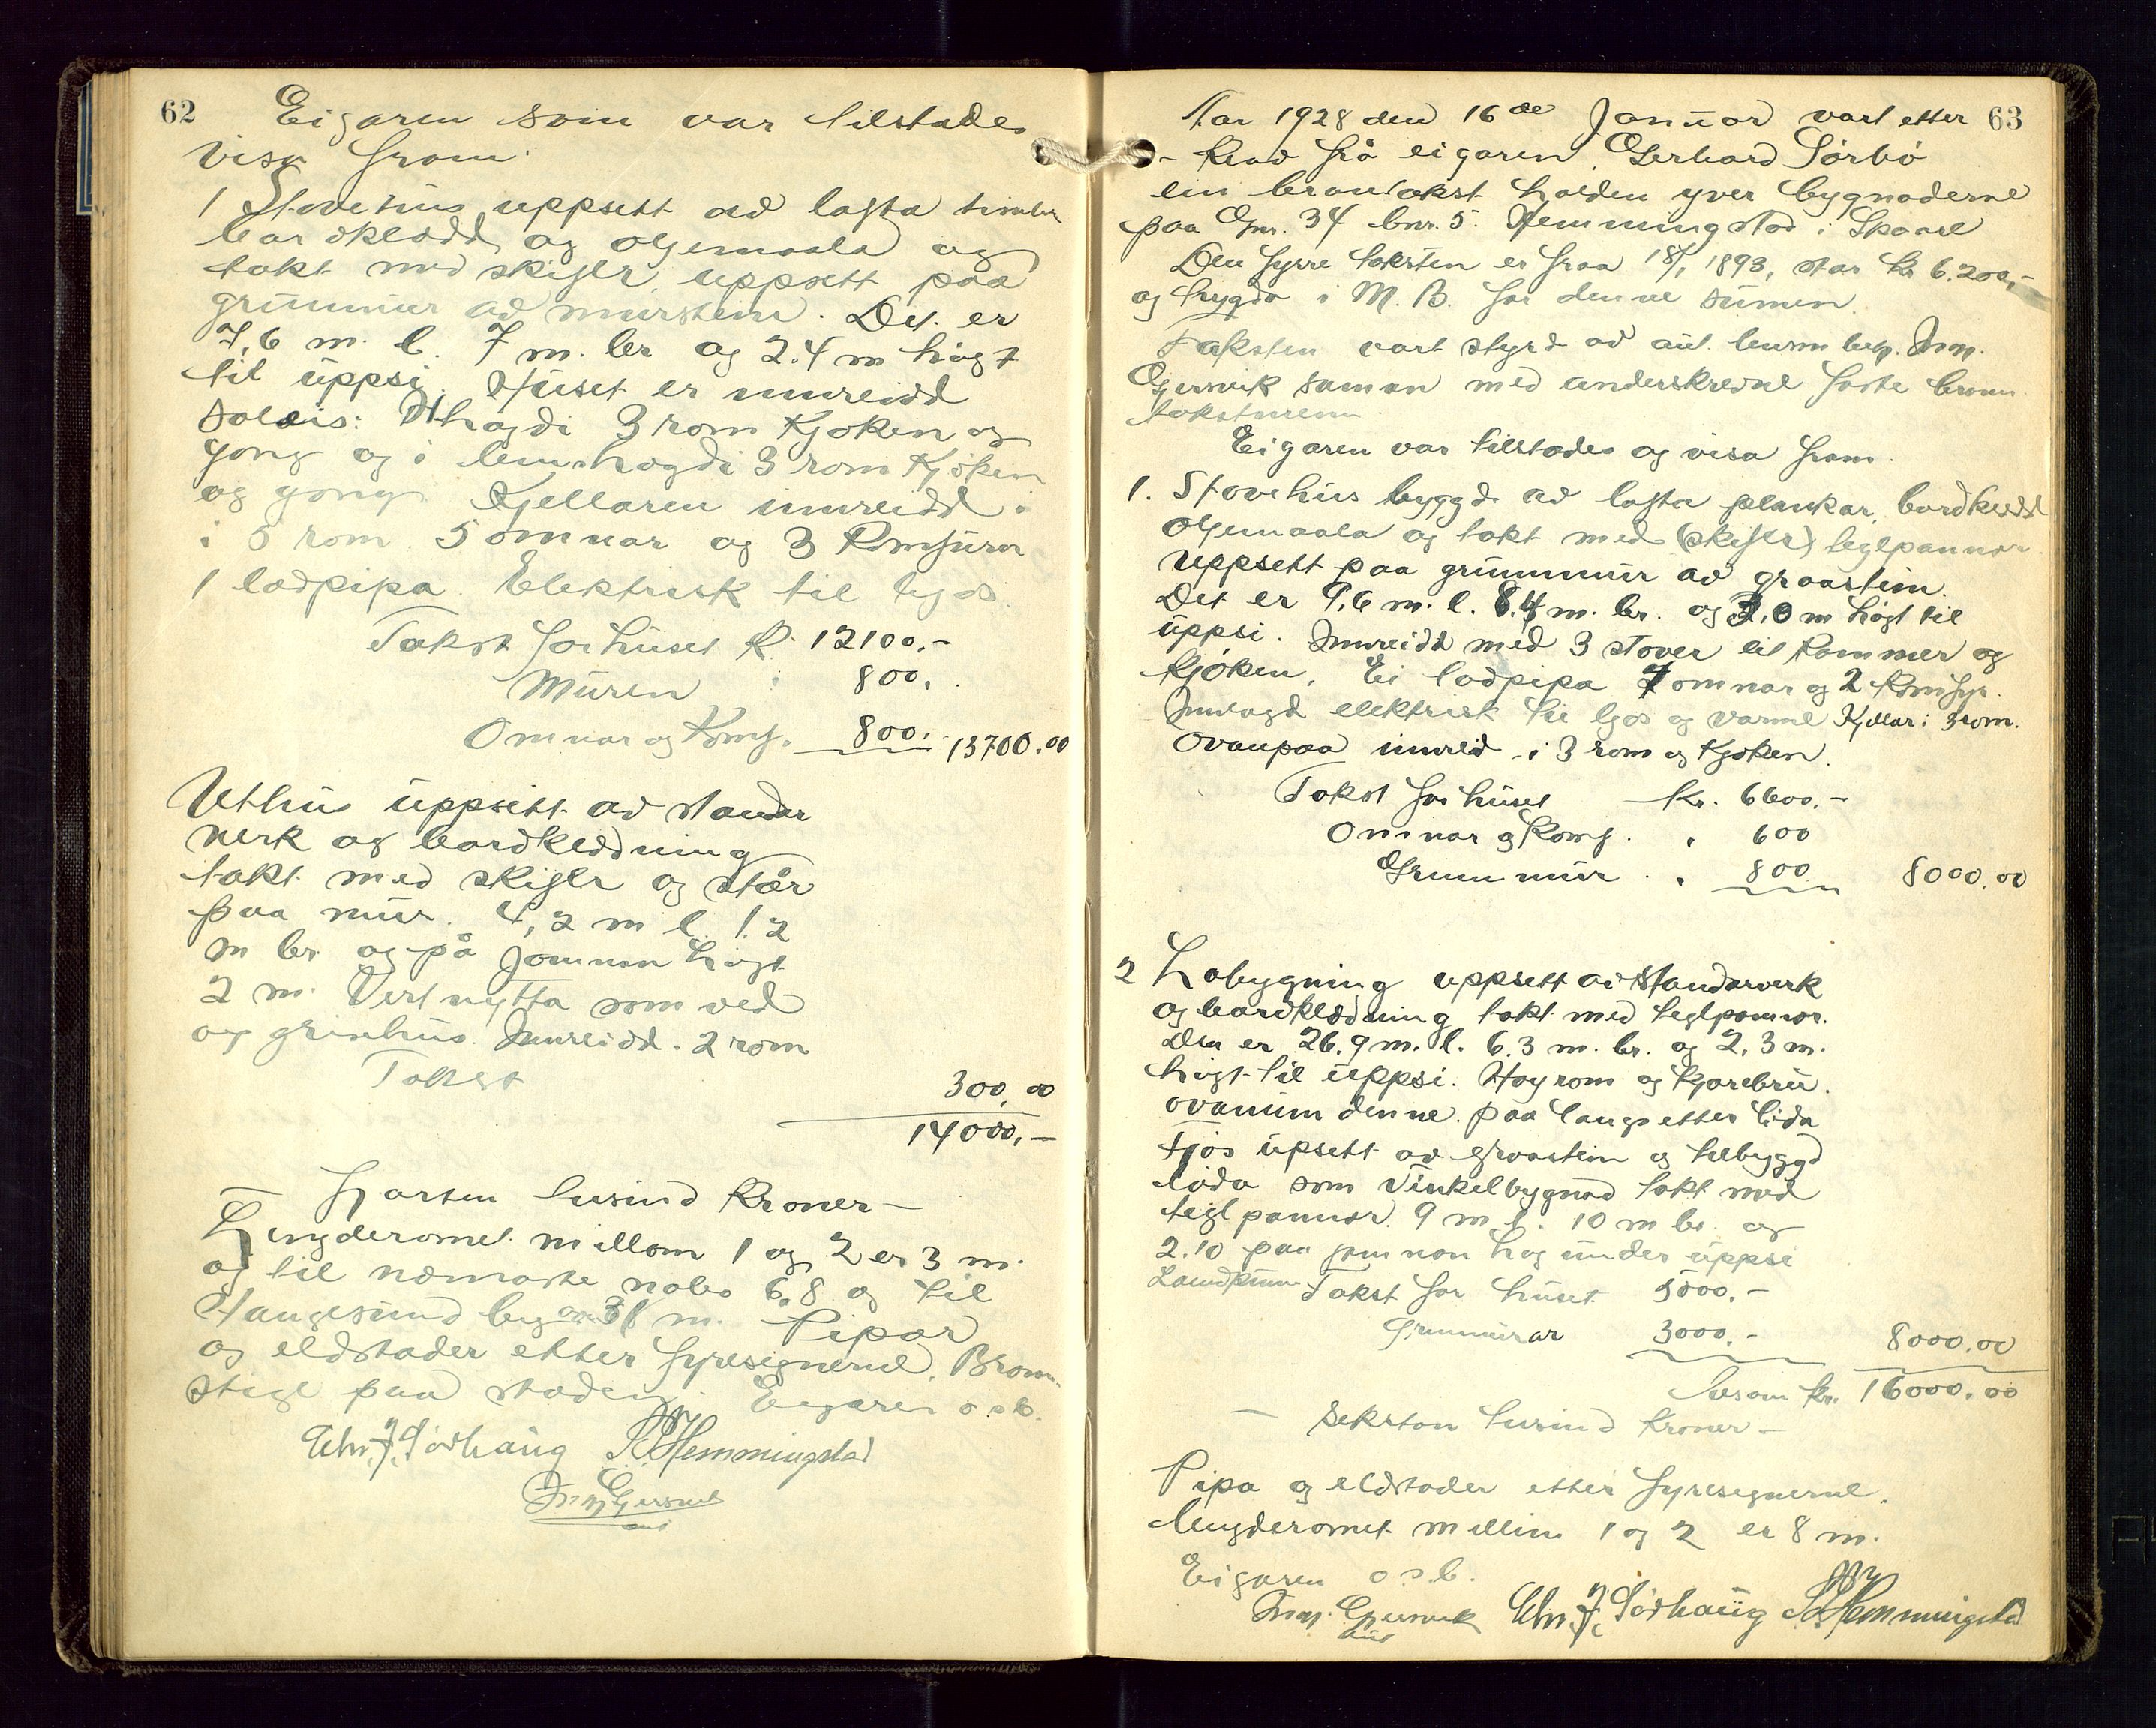 62
Eigaren som var tilstades
visa fram.
1 Stovehus uppsett av lafta timber
bordklædd og oljemaala og
tekt med skifer, uppsett paa
grunnmur av murstein. Det er
7,6 m. l. 7 m. br og 2.4 m høgt
til uppsi. Huset er innreidd
soleis: 1st høgdi 3 rom Kjøken og
gong og i lemhøgdi 3 rom Kjøken
og gong. Kjellaren innreidd
i 5 rom. 5 omnar og 3 Komfurer
1 ladpipa. Elektrisk til ljos.
Takst for huset kr. 12100.-
Muren 800.
Omnar og Komf. 800. 13700.00
Uthus uppsett av stander
verk og bordkledning
tekt med skifer og står
paa mur. 4,2 m l. 1.2
m br. og på jamnen høgt
2 m. Vert nytta som ved
og grisehus. Innreidd. 2 rom
Takst
300.00
14000.-
Fjorten tusind kroner —
Lengderomet millom 1 og 2 er 3 m.
og til næmaste nabo 6.8 og til
Haugesund by 31 m. Pipor
og eldstader etter fyresegnerne. Brann
stige paa staden. Eigaren o.s.b.
Chr. J. Sørhaug K. Hemmingstad
Inm Gjersvik
aut
63
Aar 1928 den 16de Januar vart etter
- krav frå eigaren Gerhard Sørbø
ein brantakst halden yver bygnaderne
paa Gnr. 34 bnr. 5. Hemmingstad i Skaare
Den fyrre taksten er fraa 18/1 1893, star kr 6.200,-
og trygda i M. B. for denne sumen.
Taksten vart styrd av aut. lensm. betj. Inm.
Gjersvik saman med underskrevne faste brann
takstmenn
Eigaren var tilstades og visa fram.
1. Stovehus byggd av lafta plankar, bordkledd
oljemaala og tekt med (skifer) teglpannor
uppsett paa grunnmur av graastein.
Det er 9,6 m. l. 8.4 m. br. og 3,0 m høgt til
uppsi. Innreidd med 3 stover eit kammer og
kjøken. Ei ladpipa 7 omnar og 2 komfyr.
Innlagd elektrisk til ljos og varme Kjellar i 3 rom.
Ovanpaa innreid i 3 rom og Kjøken.
Takst for huset Kr. 6600.-
Omnar og Komf. " 600
Grunnmur " 800 8000.00
2 Løbygning uppsett av standarverk
og bordklædning tekt med teglpannor.
Den er 26.9 m. l. 6.3 m. br. og 2,3 m.
høgt til uppsi. Høyrom og kjørebru.
ovanum denne. paa langs etter løda
fjøs upsett av graastein og tilbyggd
løda som vinkelbygnad tekt med
teglpannor. 9 m l. 10 m br. og
2.10 paa jamnan høg under uppsi
Takst for huset 5000.-
Grunnmurar 3000.- 8000.00
Tilsam kr. 16000.00
— Sekstan tusind kroner —
Pipa og eldstader etter fyresegnerne.
Lengderomet millim 1 og 2 er 8 m.
Eigaren o.s.b.
Inm. Gjersvik Chr. J. Sørhaug K. Hemmingstad
aut